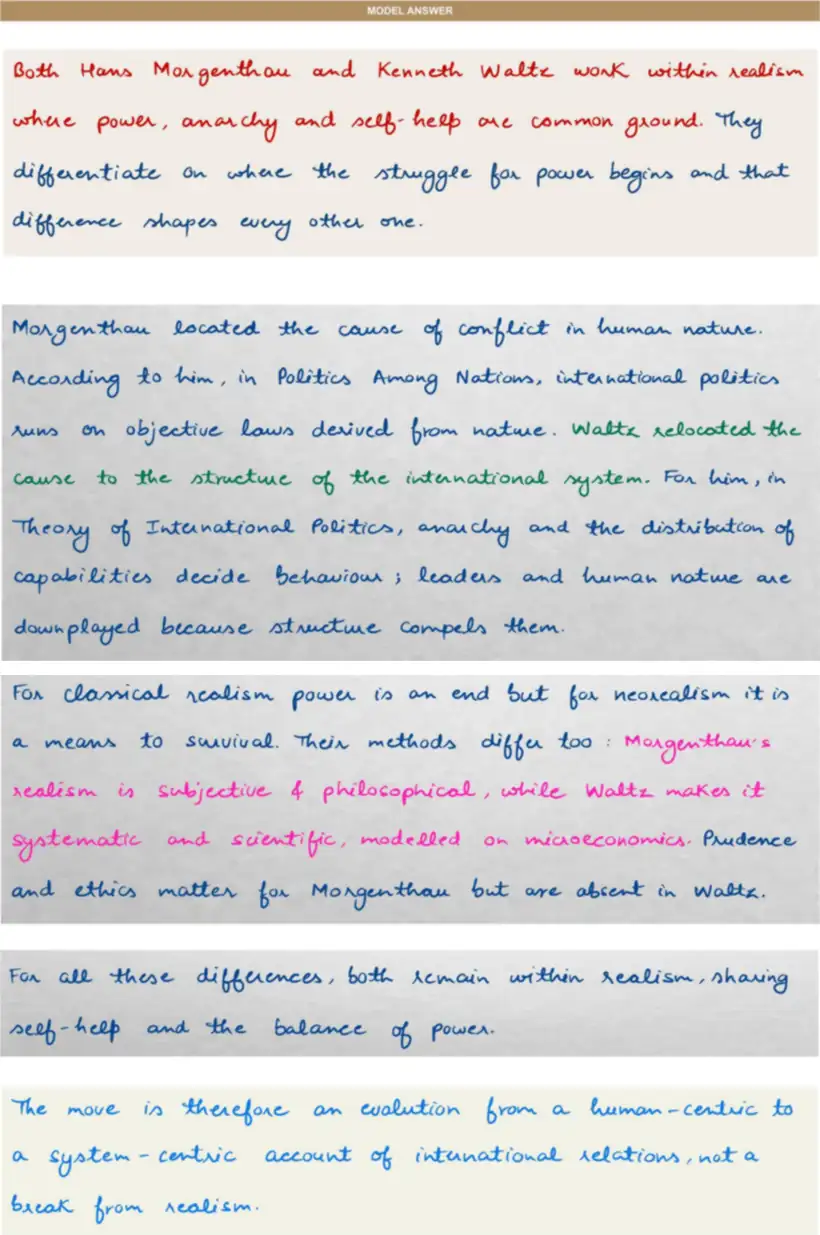 MODEL ANSWER
Both Hans Morgenthau and Kenneth Waltz work within realism
where power, anarchy and self-help are common ground. They
differentiate on where the struggle for power begins and that
difference shapes every other one.
Morgenthau located the cause of conflict in human nature.
According to him, in Politics Among Nations, international politics
runs on objective laws derived from nature. Waltz relocated the
cause to the structure of the international system. For him, in
Theory of International Politics, anarchy and the distribution of
capabilities decide behaviour; leaders and human nature are
downplayed because structure compels them.
For classical realism power is an end but for neorealism it is
a means to survival. Their methods differ too: Morgenthau's
realism is subjective & philosophical, while Waltz makes it
systematic and scientific, modelled on microeconomics. Prudence
and ethics matter for Morgenthau but are absent in Waltz.
For all these differences, both remain within realism, sharing
self-help and the balance of power.
The move is therefore an evolution from a human-centric to
a system-centric account of international relations, not a
break from realism.